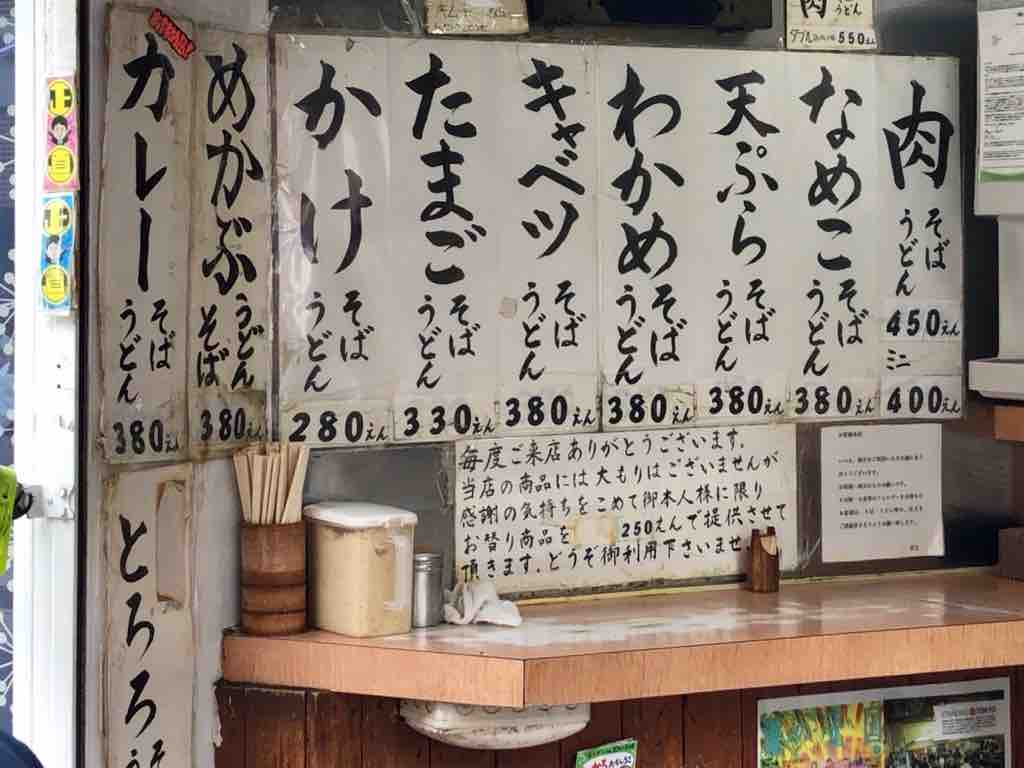 肉
うどん
550えん
肉
そば
うどん
450えん
ミニ
400えん
なめこ
そば
うどん
380えん
天ぷら
そば
うどん
380えん
わかめ
そば
うどん
380えん
キャベツ
そば
うどん
380えん
たまご
そば
うどん
330えん
かけ
そば
うどん
280えん
めかぶ
うどん
そば
380えん
カレー
そば
うどん
380えん
とろろ
毎度ご来店ありがとうございます.
当店の商品には大もりはございませんが
感謝の気持ちをこめて御本人様に限り
お替り商品を 250えんで提供させて
頂きます.どうぞ御利用下さいませ.